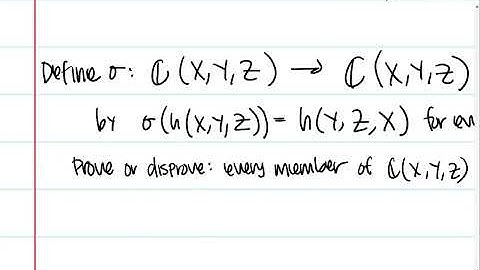 Define σ: ℂ(X,Y,Z) → ℂ(X,Y,Z)
by σ(h(X,Y,Z)) = h(Y,Z,X) for
Prove or disprove: every member of ℂ(X,Y,Z)